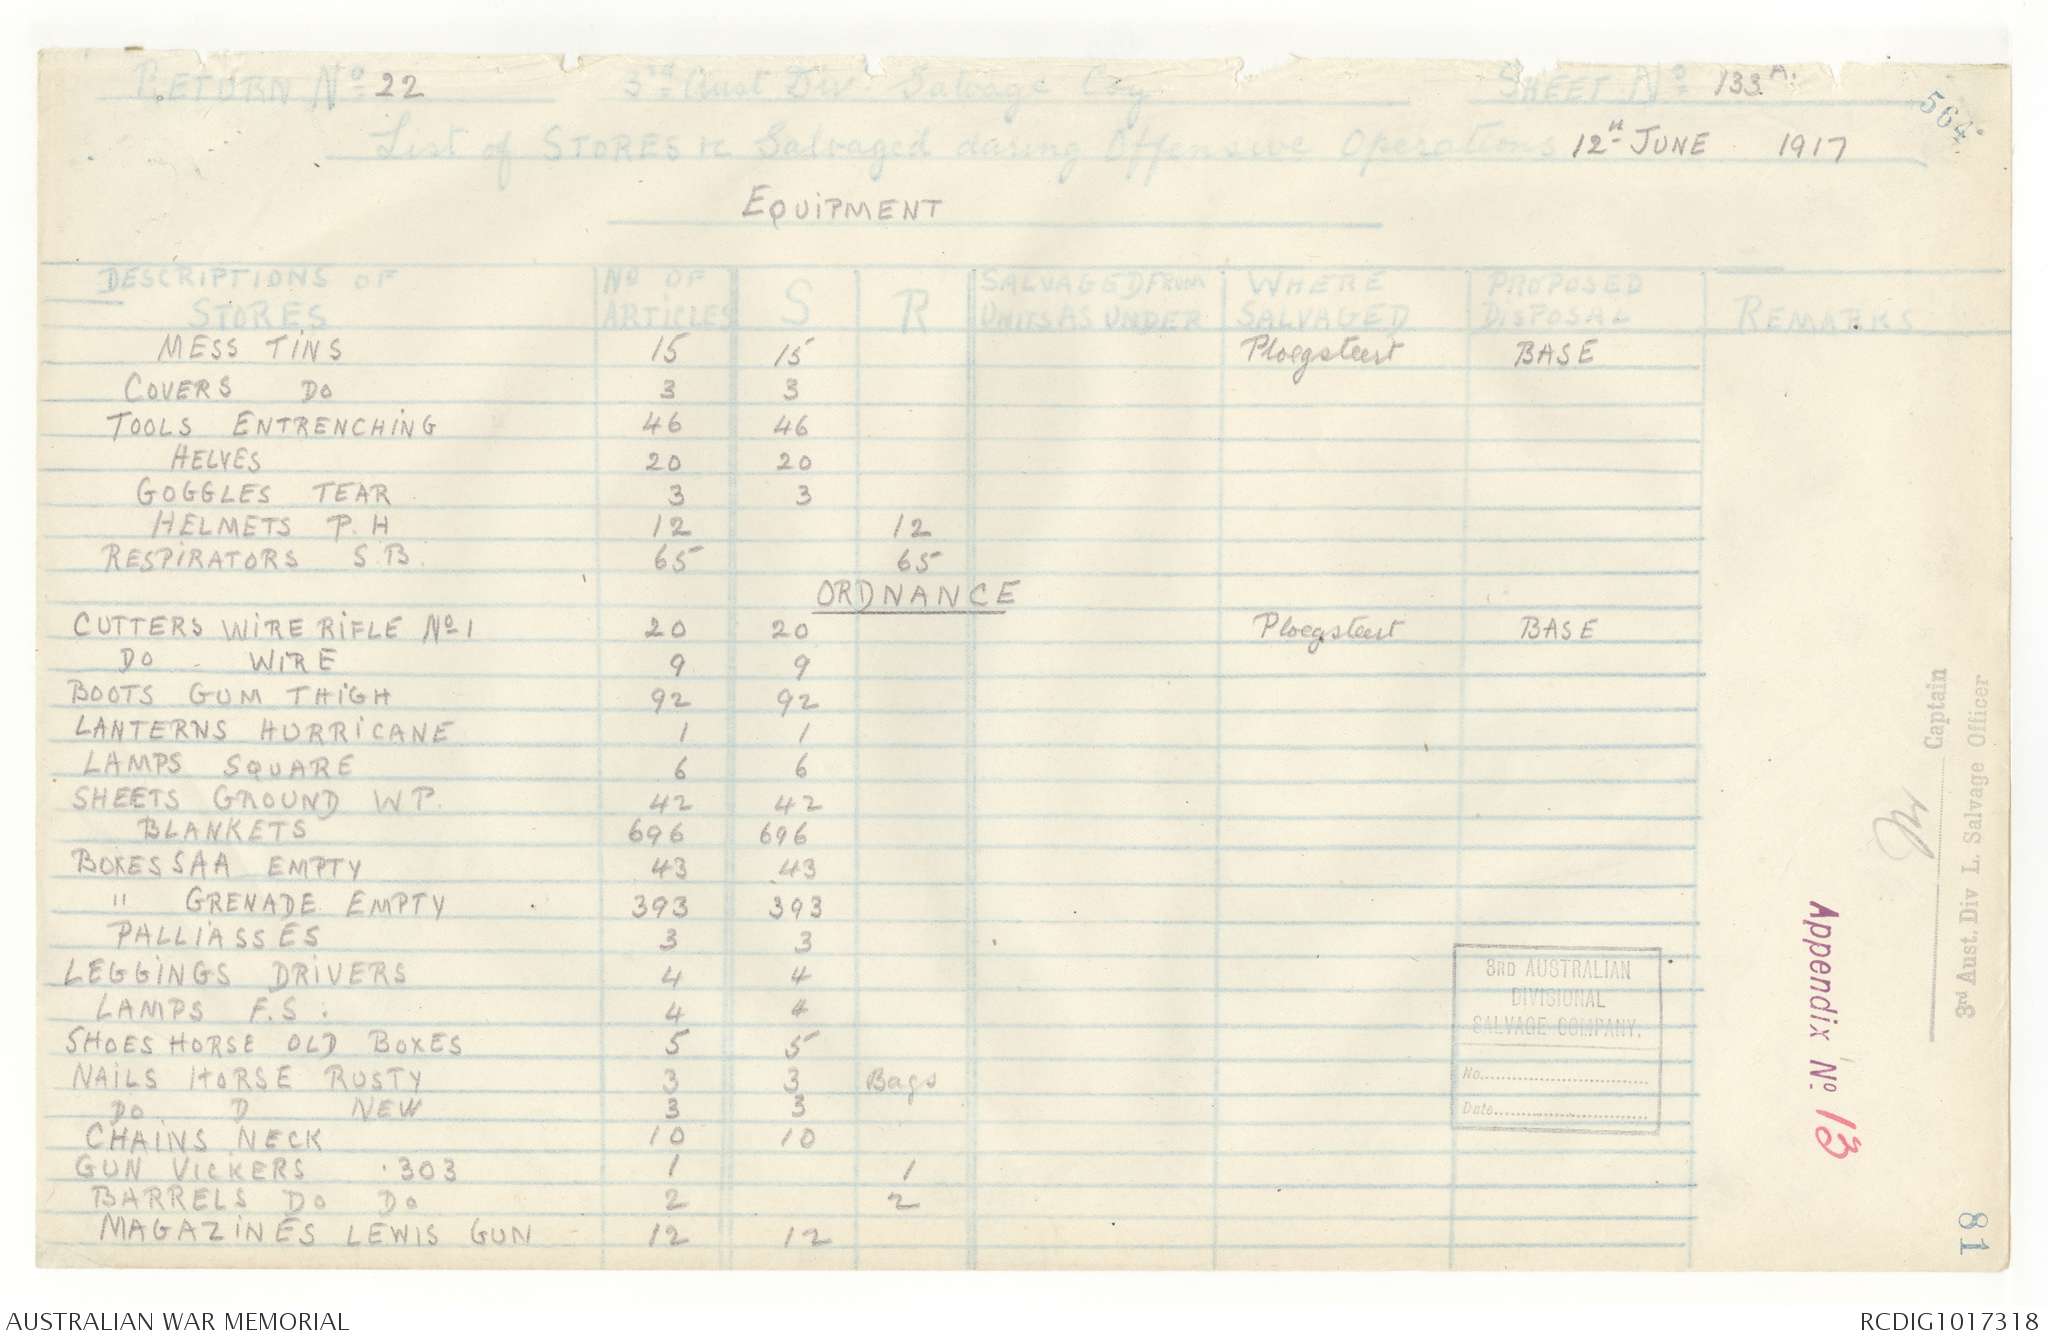 RETURN No 22 3rd Aust Div. Salvage Coy SHEET No 133A.
564.
List of STORES &c Salvaged during Offensive Operations 12th JUNE 1917
EQUIPMENT
DESCRIPTIONS OF STORES No OF ARTICLES S R SALVAGED FROM UNITS AS UNDER WHERE SALVAGED PROPOSED DISPOSAL REMARKS
MESS TINS 15 15 Ploegsteert BASE
COVERS DO 3 3
TOOLS ENTRENCHING 46 46
HELVES 20 20
GOGGLES TEAR 3 3
HELMETS P.H 12 12
RESPIRATORS S.B. 65 65
ORDNANCE
CUTTERS WIRE RIFLE No 1 20 20 Ploegsteert BASE
DO WIRE 9 9
BOOTS GUM THIGH 92 92
LANTERNS HURRICANE 1 1
LAMPS SQUARE 6 6
SHEETS GROUND W P. 42 42
BLANKETS 696 696
BOXES SAA EMPTY 43 43
" GRENADE EMPTY 393 393
PALLIASSES 3 3
LEGGINGS DRIVERS 4 4
LAMPS F.S. 4 4
SHOES HORSE OLD BOXES 5 5
NAILS HORSE RUSTY 3 3 Bags
DO D NEW 3 3
CHAINS NECK 10 10
GUN VICKERS .303 1 1
BARRELS DO DO 2 2
MAGAZINES LEWIS GUN 12 12
3RD AUSTRALIAN
DIVISIONAL
SALVAGE COMPANY.
No.
Date
Appendix No. 13
Captain
3rd Aust. Div L. Salvage Officer
81
AUSTRALIAN WAR MEMORIAL RCDIG1017318